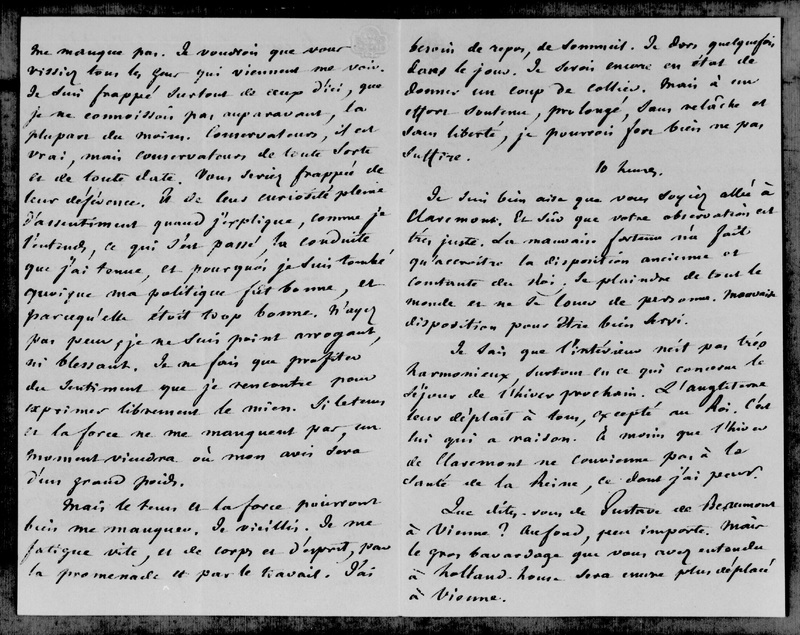 me manque pas. Je voudrois que vous
vissiez tous les gens qui viennent me voir.
Je suis frappé surtout de ceux d'ici, que
je ne connoissois pas auparavant, la
plupart du moins. Conservateurs, il est
vrai, mais conservateurs de toute sorte
et de toute date. Vous seriez frappée de
leur déférence. Et de leur curiosité pleine
d'assentiment quand j'explique, comme je
l'entends, ce qui s'est passé, la conduite
que j'ai tenue, et pourquoi je suis tombé
quoique ma politique fût bonne, et
parcequ'elle étoit trop bonne. N'ayez
pas peur, je ne suis point arrogant,
ni blessant. Je ne fais que profiter
du sentiment que je rencontre pour
exprimer librement le mien. Si le tems
et la force ne me manquent pas, un
moment viendra où mon avis sera
d'un grand poids.
Mais le tems et la force pourront
bien me manquer. Je vieillis. Je me
fatigue vite, et de corps et d'esprit, par
la promenade et par le travail. J'ai
besoin de repos, de sommeil. Je dors quelquefois
dans le jour. Je serois encore en état de
donner un coup de collier. Mais à un
effort soutenu, prolongé, sans relâche et
sans liberté, je pourrois fort bien ne pas
suffire.
10 heures.
Je suis bien aise que vous soyiez allée à
Claremont. Et sûr que votre observation est
très juste. La mauvaise fortune n'a fait
qu'accroître la disposition ancienne et
constante du Roi. Se plaindre de tout le
monde et ne se louer de personne. Mauvaise
disposition pour être bien servi.
Je sais que l'intérieur n'est pas très
harmonieux surtout en ce qui concerne le
séjour de l'hiver prochain. L'Angleterre
leur déplait à tous, excepté au Roi. C'est
lui qui a raison. À moins que l'hiver
de Claremont ne convienne pas à la
santé de la Reine, ce dont j'ai peur.
Que dites-vous de Gustave de Beaumont
à Vienne ? Au fond, peu importe. Mais
le gros bavardage que vous avez entendu
à Holland-house sera encore plus déplacé
à Vienne.